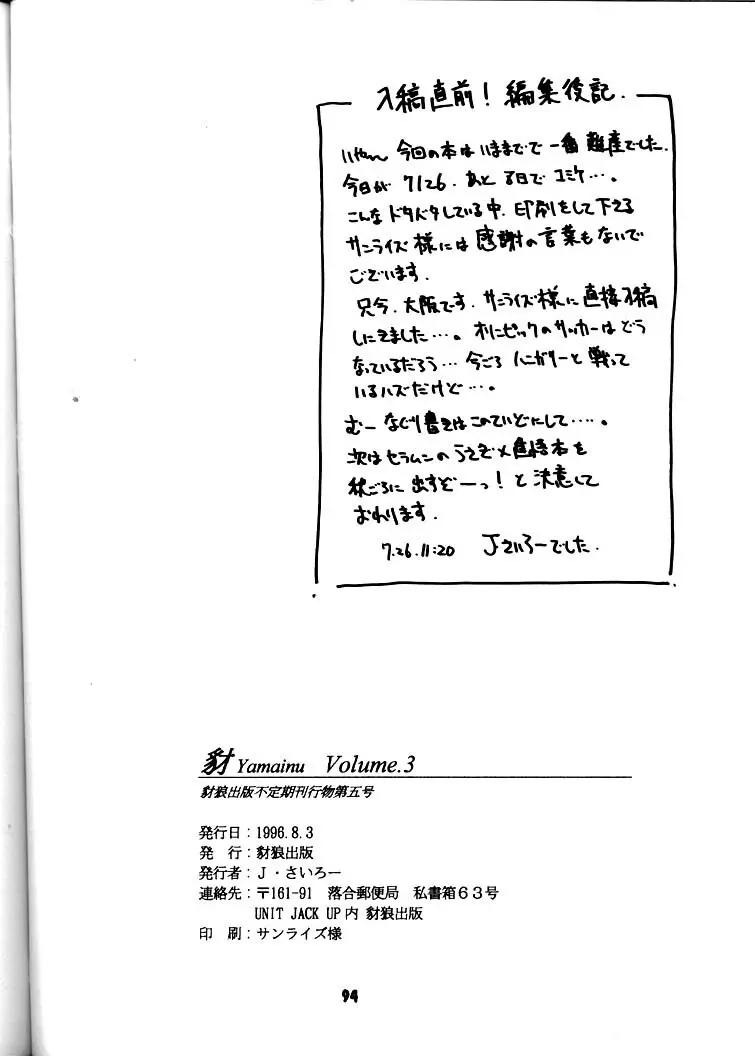 入稿直前！編集後記.
いやーん 今回の本はいままでで一番難産でした.
今日が 7/26. あと8日でコミケ…。
こんなドタバタしている中. 印刷をして下さる
サンライズ様には感謝の言葉もないで
ございます.
只今. 大阪です. サンライズ様に直接入稿
しにきました…。オリピックのサッカーはどう
なっているだろう…今ごろハンガリーと戦って
いるハズだけど…。
むー なぐり書きはこのていどにして……。
次はセラムンのうさぎ×
本を
秋ごろに出すぞーっ！と決意して
おわります.
7.26.11:20 Jさいろーでした.
豺 Yamainu Volume.3
豺狼出版不定期刊行物第五号
発行日：1996.8.3
発　行：豺狼出版
発行者：J・さいろー
連絡先：〒161-91 落合郵便局 私書箱６３号
UNIT JACK UP内 豺狼出版
印　刷：サンライズ様
94